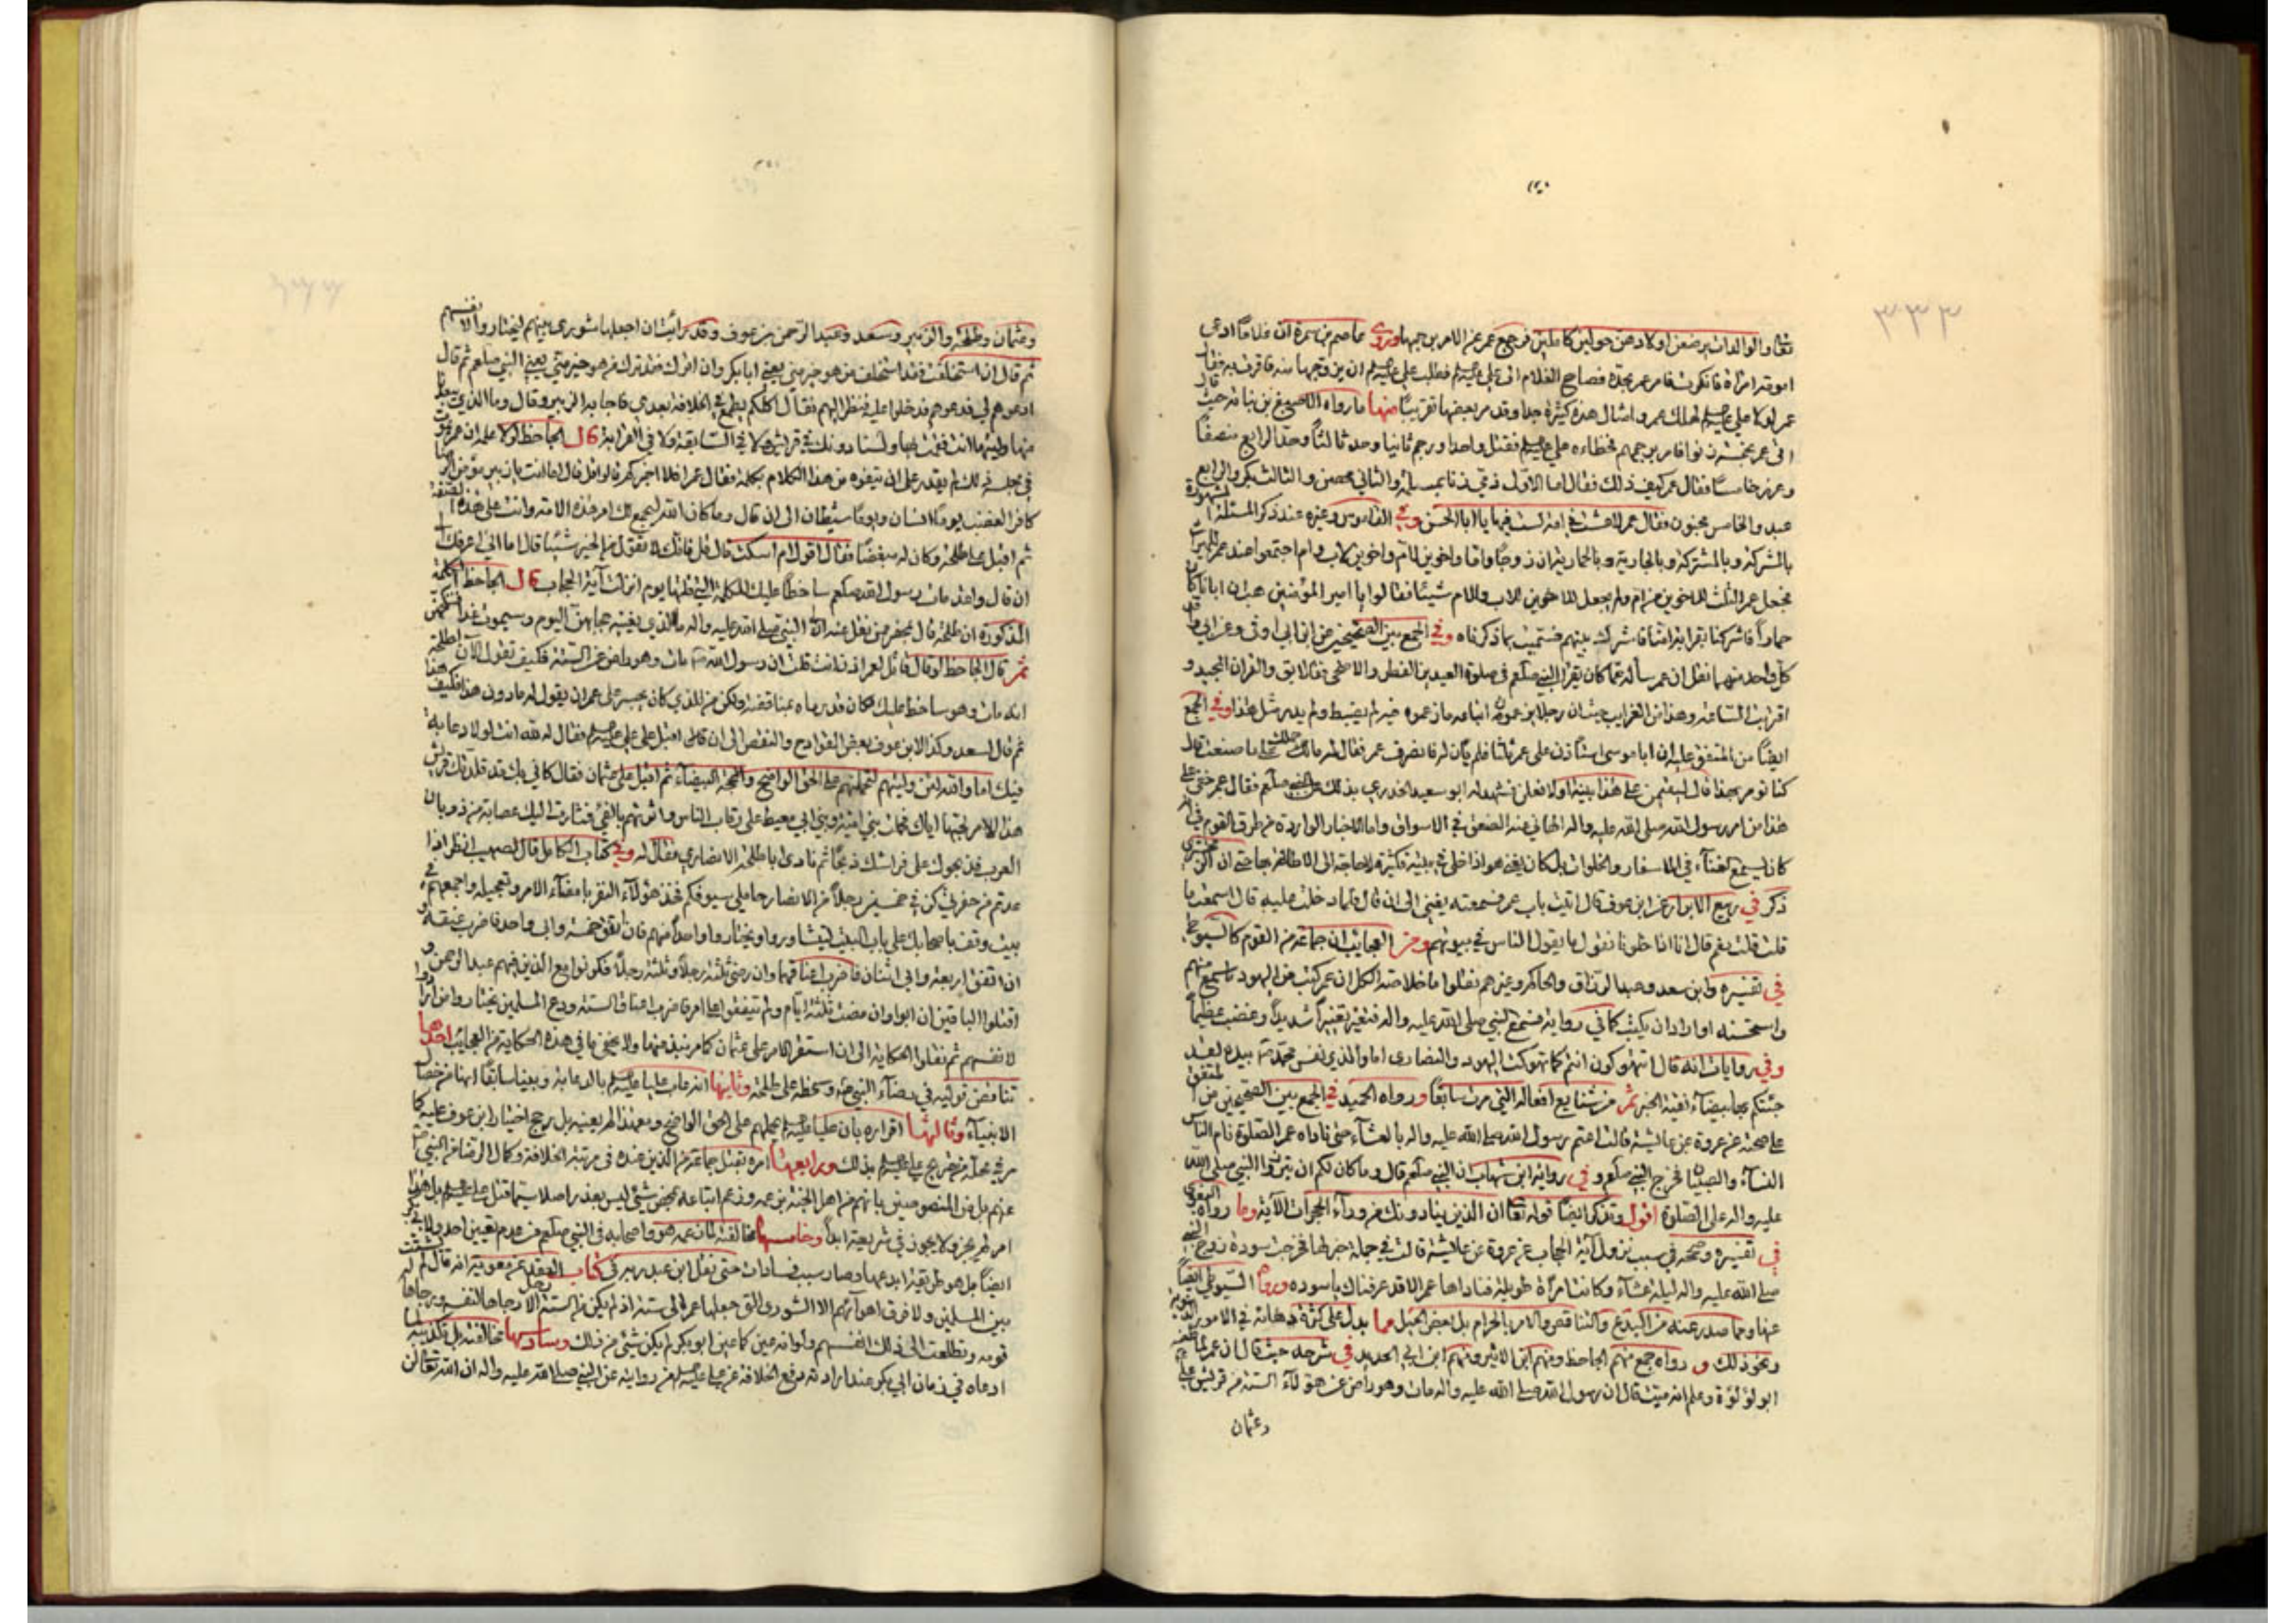 ٣٣٣
تعالى والوالدات يرضعن اولادهن حولين كاملين فرجع عمر عن الامر برجمها وروى عاصم بن سمرة ان غلاما ادعى
امومة امراة فانكرت فامر عمر بحده فصاح الغلام الى علي عليه السلم فطلب علي عليه السلم ان يزوجها منه فاقرت به فقال
عمر لولا علي عليه السلم لهلك عمر وامثال هذه كثيرة جدا وقد مر بعضها تقريبا منها ما رواه الاصبغ بن نباته حيث قال
اتى عمر بخمسة زنوا فامر برجمهم فخطاءه علي عليه السلم فقتل واحدا ورجم ثانيا وحد ثالثا وحد الرابع منصفا
وعزر خامسا فقال عمر كيف ذلك فقال اما الاول ذمي زنا بمسلمة والثاني محصن والثالث بكر والرابع
عبد والخامس مجنون فقال عمر لا عشت في امة لست فيها يا ابا الحسن وفي القاموس وغيره عند ذكر المسئلة المشهورة
بالمشركة وبالمشتركة وبالحمارية ان زوجا واما واخوين لام واخوين لاب وام اجتمعوا عند عمر للميراث
فجعل عمر الثلث للاخوين من ام ولم يجعل للاخوين للاب والام شيئا فقالوا يا امير المؤمنين هب ان ابانا كان
حمارا فاشركنا بقرابة امنا فاشرك بينهم فسميت بما ذكرناه وفي الجمع بين الصحيحين من ابن ابي اوفى وعن ابي واقد
كل واحد منهما نقل ان عمر سأله عما كان يقرا النبي صلعم في صلوة العيدين الفطر والاضحى فقال بق والقران المجيد و
اقتربت الساعة وهذا من الغرايب حيث ان رجلا يزعمون انه امام ما زعموه فيه لم يضبط ولم يدر مثل هذا وفي الجمع
ايضا من المتفق عليه ان ابا موسى استأذن على عمر ثلثا فلم يأذن له فانصرف عمر فقال له ما حملك على ما صنعت قال
كنا نومر بهذا قال لتقيمن على هذا بينة اولا فعلن فشهد له ابو سعيد الخدري بذلك عن النبي صلعم فقال عمر خفي علي
هذا من امر رسول الله صلى الله عليه واله الهاني عنه الصفق في الاسواق واما الاخبار الواردة من طرق القوم في انه
كان يسمع الغناء في الاسفار والخلوات بل كان يغني هو اذا خلى في بيته فكثيرة لا حاجة الى الاطالة بها حتى ان الزمخشري
ذكر في ربيع الابرار عن ابن عوف قال اتيت باب عمر فسمعته يغني الى ان قال فلما دخلت عليه قال اسمعت ما
قلت قلت نعم قال انا اذا خلونا نقول ما يقول الناس في بيوتهم ومن العجايب ان جماعة من القوم كالسيوطي
في تفسيره وابن سعد وعبد الرزاق والحاكم وغيرهم نقلوا ما خلاصة الكل ان عمر كتب من اليهود ما سمع منهم
واستحسنه او اراد ان يكتب كما في رواية فسمع النبي صلى الله عليه واله فتغير تغيرا شديدا وغضب عظيما
وفي روايات انه قال اتتهوكون انتم كما تهوكت اليهود والنصارى اما والذي نفس محمد بيده لقد
جئتكم بها بيضاء نقية الخبر ثم من شنايع افعاله التي مرت سابقا ورواه الحميد في الجمع بين الصحيحين من المتفق
على صحته عن عروة عن عايشة قالت اعتم رسول الله صلى الله عليه واله بالعشاء حتى ناداه عمر الصلوة نام الناس
النساء والصبيان فخرج النبي صلعم وفي رواية ابن شهاب ان النبي صلعم قال وما كان لكم ان تبرزوا النبي صلى الله
عليه واله على الصلوة اقول وتذكر ايضا قوله تعالى ان الذين ينادونك من وراء الحجرات الاية وما رواه البغوي
في تفسيره وصححه في سبب نزول آية الحجاب عن عروة عن عايشة قالت في جملة خبرها فخرجت سودة زوج النبي
صلى الله عليه واله ليلة عشاء وكانت امرأة طويلة فناداها عمر الا قد عرفناك يا سوده وروى السيوطي ايضا
عنها ومما صدر عنه من البدع والتناقص والامر بالحرام بل لبعض الحيل مما يدل على كثرة دهائه في الامور الدنيوية
ونحو ذلك و رواه جمع منهم الجاحظ ومنهم ابن الاثير ومنهم ابن ابي الحديد في شرحه حيث قال ان عمر لما طعنه
ابو لؤلؤة وعلم انه ميت قال ان رسول الله صلى الله عليه واله مات وهو راض عن هؤلاء الستة من قريش علي
وعثمان
وعثمان وطلحة والزبير وسعد وعبد الرحمن بن عوف وقد رايت ان اجعلها شورى بينهم ليختاروا لانفسهم
ثم قال ان استخلفت فقد استخلف من هو خير مني يعني ابا بكر وان اترك فقد ترك من هو خير مني يعني النبي صلعم ثم قال
ادعوهم لي فدعوهم فدخلوا عليه فنظر اليهم فقال اكلكم يطمع في الخلافة بعدي فاجابه الزبير وقال وما الذي يبعدنا
منها وليتها انت فقمت بها ولسنا دونك في قريش ولا في السابقة ولا في القرابة قال الجاحظ لولا علمه ان عمر يموت
في مجلسه ذلك لم يقدر على ان يتفوه من هذا الكلام بكلمة فقال عمر افلا اخبركم قالوا قل قال اما انت يا زبير مؤمن الرضا
كافر الغضب يوما انسان ويوما شيطان الى ان قال وما كان الله ليجمع لك امر هذه الامة وانت على هذه الصفة
ثم اقبل على طلحة وكان له مبغضا فقال اقول ام اسكت قال قل فانك لا تقول من الخير شيئا قال اما اني اعرفك
ان قال ولقد مات رسول الله صلعم ساخطا عليك للكلمة التي قلتها يوم انزلت آية الحجاب قال الجاحظ الكلمة
المذكورة ان طلحة قال بمحضر من نقل عنه الى النبي صلى الله عليه واله ما الذي يغنيه حجابهن اليوم وسيموت غدا فننكحهن
ثم قال الجاحظ لو قال قائل لعمر اذ انت قلت ان رسول الله مات وهو راض عن الستة فكيف تقول الان لطلحة
انه مات وهو ساخط عليك لكان قد رماه بمناقضة ولكن من الذي كان يجسر على عمر ان يقول له ما دون هذا فكيف هذا
ثم قال لسعد وكذا لابن عوف بعض القوادح والنقص الى ان قال ثم اقبل على علي عليه السلم فقال له لله انت لولا دعابة
فيك اما والله لئن وليتهم لتحملنهم على الحق الواضح والمحجة البيضاء ثم اقبل على عثمان فقال كاني بك قد قلدتك قريش
هذا الامر لحبها اياك فحملت بني امية وبني ابي معيط على رقاب الناس واثرتهم بالفيء فثارت اليك عصابة من ذوبان
العرب فذبحوك على فراشك ذبحا ثم نادى ابا طلحة الانصاري فقال له وفي كتاب الكامل قال لصهيب انظر اذا
عدتم من حفرتي كن في خمسين رجلا من الانصار حاملي سيوفكم فخذ هؤلاء النفر بامضاء الامر وتعجيله واجمعهم في
بيت وقف باصحابك على باب البيت ليتشاوروا ويختاروا واحدا منهم فان اتفق خمسة وابى واحد فاضرب عنقه و
ان اتفق اربعة وابى اثنان فاضرب اعناقهما وان رضي ثلثة رجلا وثلثة رجلا فكونوا مع الذين فيهم عبد الرحمن و
اقتلوا الباقين ان ابوا وان مضت ثلثة ايام ولم يتفقوا على امر فاضرب اعناق الستة ودع المسلمين يختاروا من ارادوا
لانفسهم ثم نقلوا الحكاية الى ان استقر الامر على عثمان كما مر نبذ منها ولا يخفى ما في هذه الحكاية من العجايب احدها
تناقض قوليه في رضاء النبي وسخطه على طلحة وثانيها انه عاب عليا عليه السلم بالدعابة وبينا سابقا انها من خصال
الانبياء وثالثها اقراره بان عليا عليه السلم يحملهم على الحق الواضح ومع هذا لم يعينه بل رجح اختيار ابن عوف عليه كما
مر في محله من تصريح علي عليه السلم بذلك ورابعها امره بقتل جماعة من الذين عنده في مرتبة الخلافة وكمال الرضا من النبي
عنهم بل من المنصوصين بانهم من اهل الجنة بزعمه وزعم اتباعه بمحض شيء ليس بعذر اصلا سيما قتل علي عليه السلم بل هذا
امر لم يجز ولا يجوز في شريعة ابدا وخامسها مخالفته لما زعمه هو واصحابه في النبي صلعم من عدم تعيين احد ولابي بكر
ايضا بل هو طريقة ابدعها وصار سبب فسادات حتى نقل ابن عبد ربه في كتاب العقد عن معوية انه قال لم يشتت
بين المسلمين ولا فرق اهواءهم الا الشورى التي جعلها عمر الى ستة اذ لم يكن من الستة الا رجاها لنفسه ورجاها له
قومه وتطلعت الى ذلك انفسهم ولو انه عين كما عين ابو بكر لم يكن شيء من ذلك وسادسها مخالفته بل تكذيبه لما
ادعاه في زمان ابي بكر عند ارادته دفع الخلافة عن علي عليه السلم من روايته عن النبي صلى الله عليه واله ان الله تعالى لن